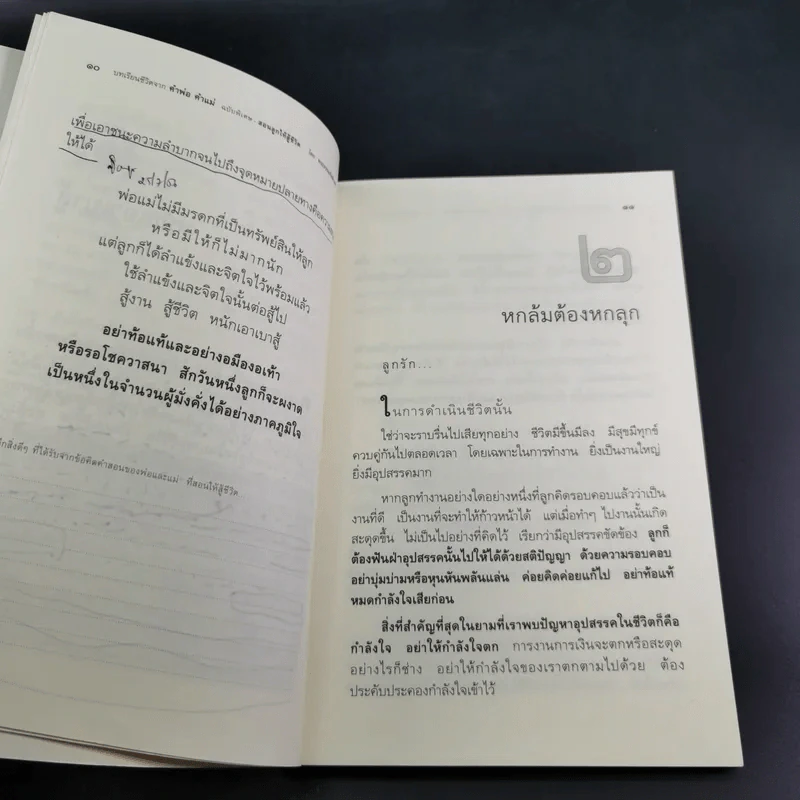 ๑๐ บทเรียนชีวิตจาก คำพ่อ คำแม่ ฉบับพิเศษ : สอนลูกให้สู้ชีวิต
เพื่อเอาชนะความลำบากจนไปถึงจุดหมายปลายทางคือความ
ให้ได้
พ่อแม่ไม่มีมรดกที่เป็นทรัพย์สินให้ลูก
หรือมีให้ก็ไม่มากนัก
แต่ลูกก็ได้ลำแข้งและจิตใจไว้พร้อมแล้ว
ใช้ลำแข้งและจิตใจนั้นต่อสู้ไป
สู้งาน สู้ชีวิต หนักเอาเบาสู้
อย่าท้อแท้และอย่างอมืองอเท้า
หรือรอโชควาสนา สักวันหนึ่งลูกก็จะผงาด
เป็นหนึ่งในจำนวนผู้มั่งคั่งได้อย่างภาคภูมิใจ
สิ่งดีๆ ที่ได้รับจากข้อคิดคำสอนของพ่อและแม่ ที่สอนให้สู้ชีวิต
๑๑
๒
หกล้มต้องหกลุก
ลูกรัก...
ในการดำเนินชีวิตนั้น
ใช่ว่าจะราบรื่นไปเสียทุกอย่าง ชีวิตมีขึ้นมีลง มีสุขมีทุกข์
ควบคู่กันไปตลอดเวลา โดยเฉพาะในการทำงาน ยิ่งเป็นงานใหญ่
ยิ่งมีอุปสรรคมาก
หากลูกทำงานอย่างใดอย่างหนึ่งที่ลูกคิดรอบคอบแล้วว่าเป็น
งานที่ดี เป็นงานที่จะทำให้ก้าวหน้าได้ แต่เมื่อทำๆ ไปงานนั้นเกิด
สะดุดขึ้น ไม่เป็นไปอย่างที่คิดไว้ เรียกว่ามีอุปสรรคขัดข้อง ลูกก็
ต้องฟันฝ่าอุปสรรคนั้นไปให้ได้ด้วยสติปัญญา ด้วยความรอบคอบ
อย่าบุ่มบ่ามหรือหุนหันพลันแล่น ค่อยคิดค่อยแก้ไป อย่าท้อแท้
หมดกำลังใจเสียก่อน
สิ่งที่สำคัญที่สุดในยามที่เราพบปัญหาอุปสรรคในชีวิตก็คือ
กำลังใจ อย่าให้กำลังใจตก การงานการเงินจะตกหรือสะดุด
อย่างไรก็ช่าง อย่าให้กำลังใจของเราตกตามไปด้วย ต้อง
ประคับประคองกำลังใจเข้าไว้